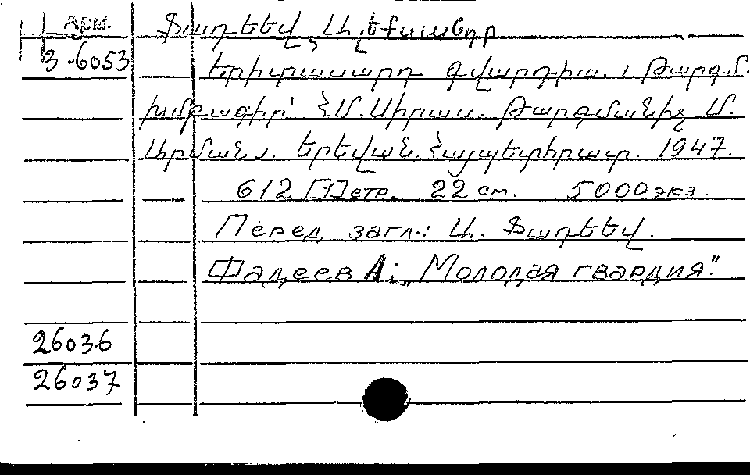 Арм. Ֆադեեվ, Ալեքսանդր
3-6053 Երիտասարդ գվարդիա. Թարգմ.
խմբագիր՝ Հ.Մ. Սիրաս. Թարգմանիչ Մ.
Արմանս. Երեվան. Հայպետհրատ. 1947.
612 [1]стр. 22 см. 5000 экз.
Перед загл.: Ա. Ֆադեեվ.
Фадеев А: „Молодая гвардия."
26036
26037